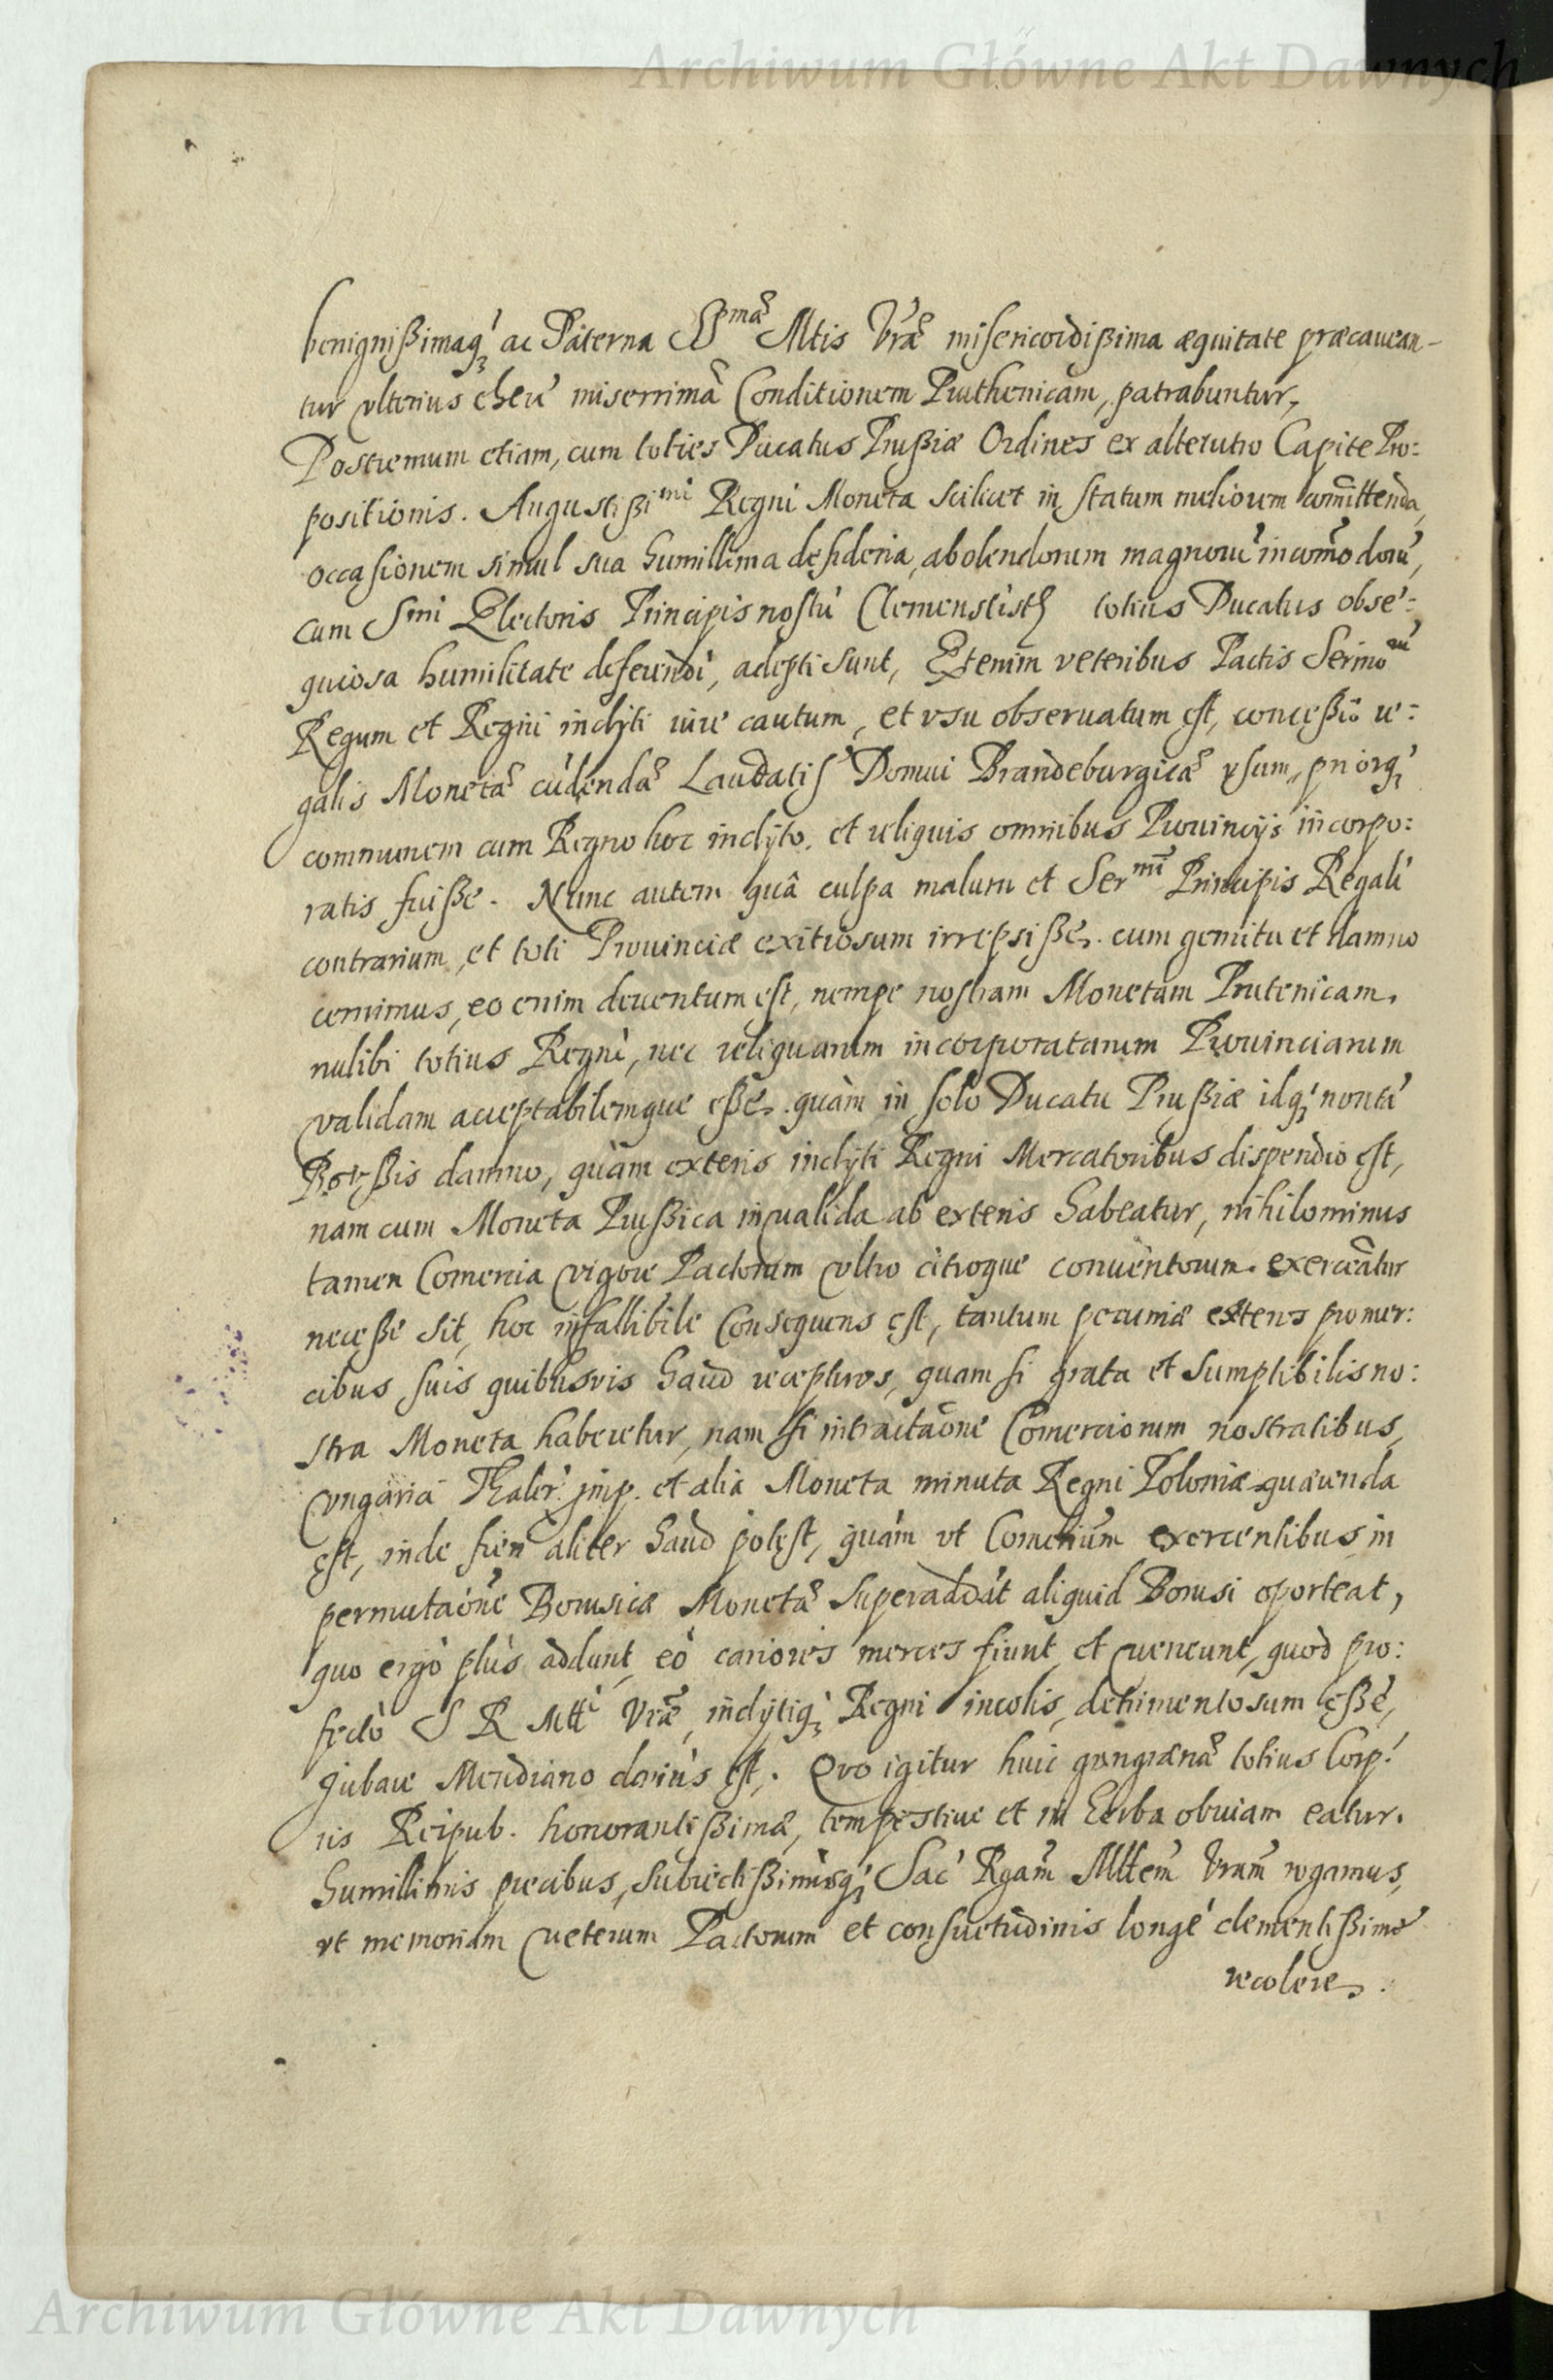 Archiwum Główne Akt Dawnych
benignißimaq́ꝫ ac Paterna Sᵐᵃ̃ Mtis Vræ̃ misericordißima æquitate præcauean-
tur vlterius eheu miserrimã Conditionem Pruthenicam, patrabuntur,
Postremum etiam, cum toties Ducatus Prußiæ Ordines ex alterutro Capite Pro:
positionis. Augustißiᵐⁱ Regni Moneta scilicet in statum meliorem com̃ittenda,
occasionem simul sua humillima desideria, abolendorum magnorũ incom̃odorũ,
cum Sm̃i Electoris Principis nostri Clementiss totius Ducatus obse:
quiosa humilitate deferendi, adepti sunt, Etenim veteribus Pactis Serm̃oᵐ̃
Regum et Regni inclyti iure cautum, et vsu obseruatum est, conceßio re:
galis Monetæ̃ cudendæ̃ Laudatis̃ Domui Brandeburgicæ̃ vsum, priorq́ꝫ
communem cum Regno hoc inclyto. et reliquis omnibus Prouincijs incorpo:
ratis fuiße. Nunc autem quâ culpa malum et Serᵐⁱ̃ Principis Regali
contrarium, et toti Prouinciæ exitiosum irrepsiße. cum gemitu et damno
cernimus, eo enim deuentum est, nempe nostram Monetam Prutenicam.
nulibi totius Regni, nec reliquarum incorporatarum Prouinciarum
validam acceptabilemque eße. quàm in solo Ducatu Prußiæ idq́ꝫ non tã
Borußis damno, quàm exteris inclyti Regni Mercatoribus dispendio est,
nam cum Moneta Prußica inualida ab exteris habeatur, nihilominus
tamen Comercia vigore Pactorum vltro citroque conuentorum. exerceãtur
neceße sit, hoc infallibile Consequens est, tantum pecuniæ exteros pro mer:
cibus suis quibusvis haud recepturos, quam si grata et sumptibilis no:
stra Moneta haberetur, nam si in tractaõne Comerciorum nostratibus,
vngaria Thaler. jmp. et alia Moneta minuta Regni Poloniæ quærenda
est, inde fieri aliter haud potest, quàm vt Comerciũm exercentibus in
permutaõne Borusicæ Monetæ̃ superaddãt aliquid Borusi oporteat,
quo ergò plùs addunt, eò cariores merces fiunt et veneunt, quod pro:
fectò S R Mtĩ Vræ̃, inclytiq́ꝫ Regni incolis, detrimentosum eße,
jubare Meridiano clarius est. Quo igitur huic gangrænæ̃ totius Corp:
ris Reipub. honorantißimæ, tempestiue et in herba obuiam eatur.
humillimis precibus, subiectißimisq́ꝫ Sac̃ Rgam̃ Mttem̃ Vram̃ rogamus,
vt memoriam veterum Pactorum et consuetudinis longè clementißimè
recolere.
Archiwum Główne Akt Dawnych